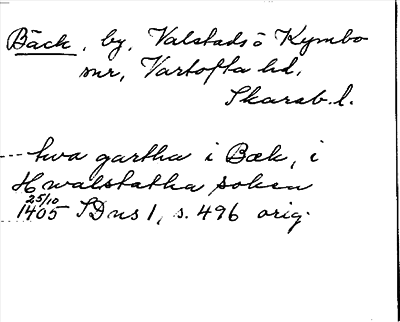 Bäck, by, Valstads o Kymbo
snr, Vartofta hd,
Skarab. l.
--- twa gartha i Bæk, i
Hwalstatha soken
25/10
1405 SDns 1, s. 496 orig.